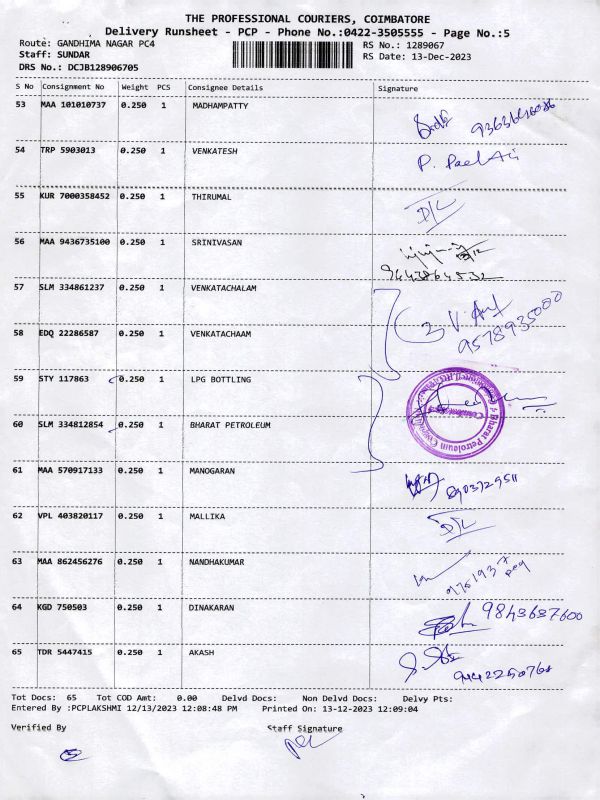 THE PROFESSIONAL COURIERS, COIMBATORE
Delivery Runsheet - PCP - Phone No.:0422-3505555 - Page No.:5
Route: GANDHIMA NAGAR PC4 RS No.: 1289067
Staff: SUNDAR RS Date: 13-Dec-2023
DRS No.: DCJB128906705
S No Consignment No Weight PCS Consignee Details Signature
53 MAA 101010737 0.250 1 MADHAMPATTY
54 TRP 5903013 0.250 1 VENKATESH P.
55 KUR 7000358452 0.250 1 THIRUMAL D/L
56 MAA 9436735100 0.250 1 SRINIVASAN
9443864532
57 SLM 334861237 0.250 1 VENKATACHALAM
58 EDQ 22286587 0.250 1 VENKATACHAAM 9578935000
59 STY 117863 0.250 1 LPG BOTTLING
60 SLM 334812854 0.250 1 BHARAT PETROLEUM
61 MAA 570917133 0.250 1 MANOGARAN 8903729511
62 VPL 403820117 0.250 1 MALLIKA D/L
63 MAA 862456276 0.250 1 NANDHAKUMAR
64 KGD 750503 0.250 1 DINAKARAN 9843637600
65 TDR 5447415 0.250 1 AKASH 9442250768
Tot Docs: 65 Tot COD Amt: 0.00 Delvd Docs: Non Delvd Docs: Delvy Pts:
Entered By :PCPLAKSHMI 12/13/2023 12:08:48 PM Printed On: 13-12-2023 12:09:04
Verified By Staff Signature